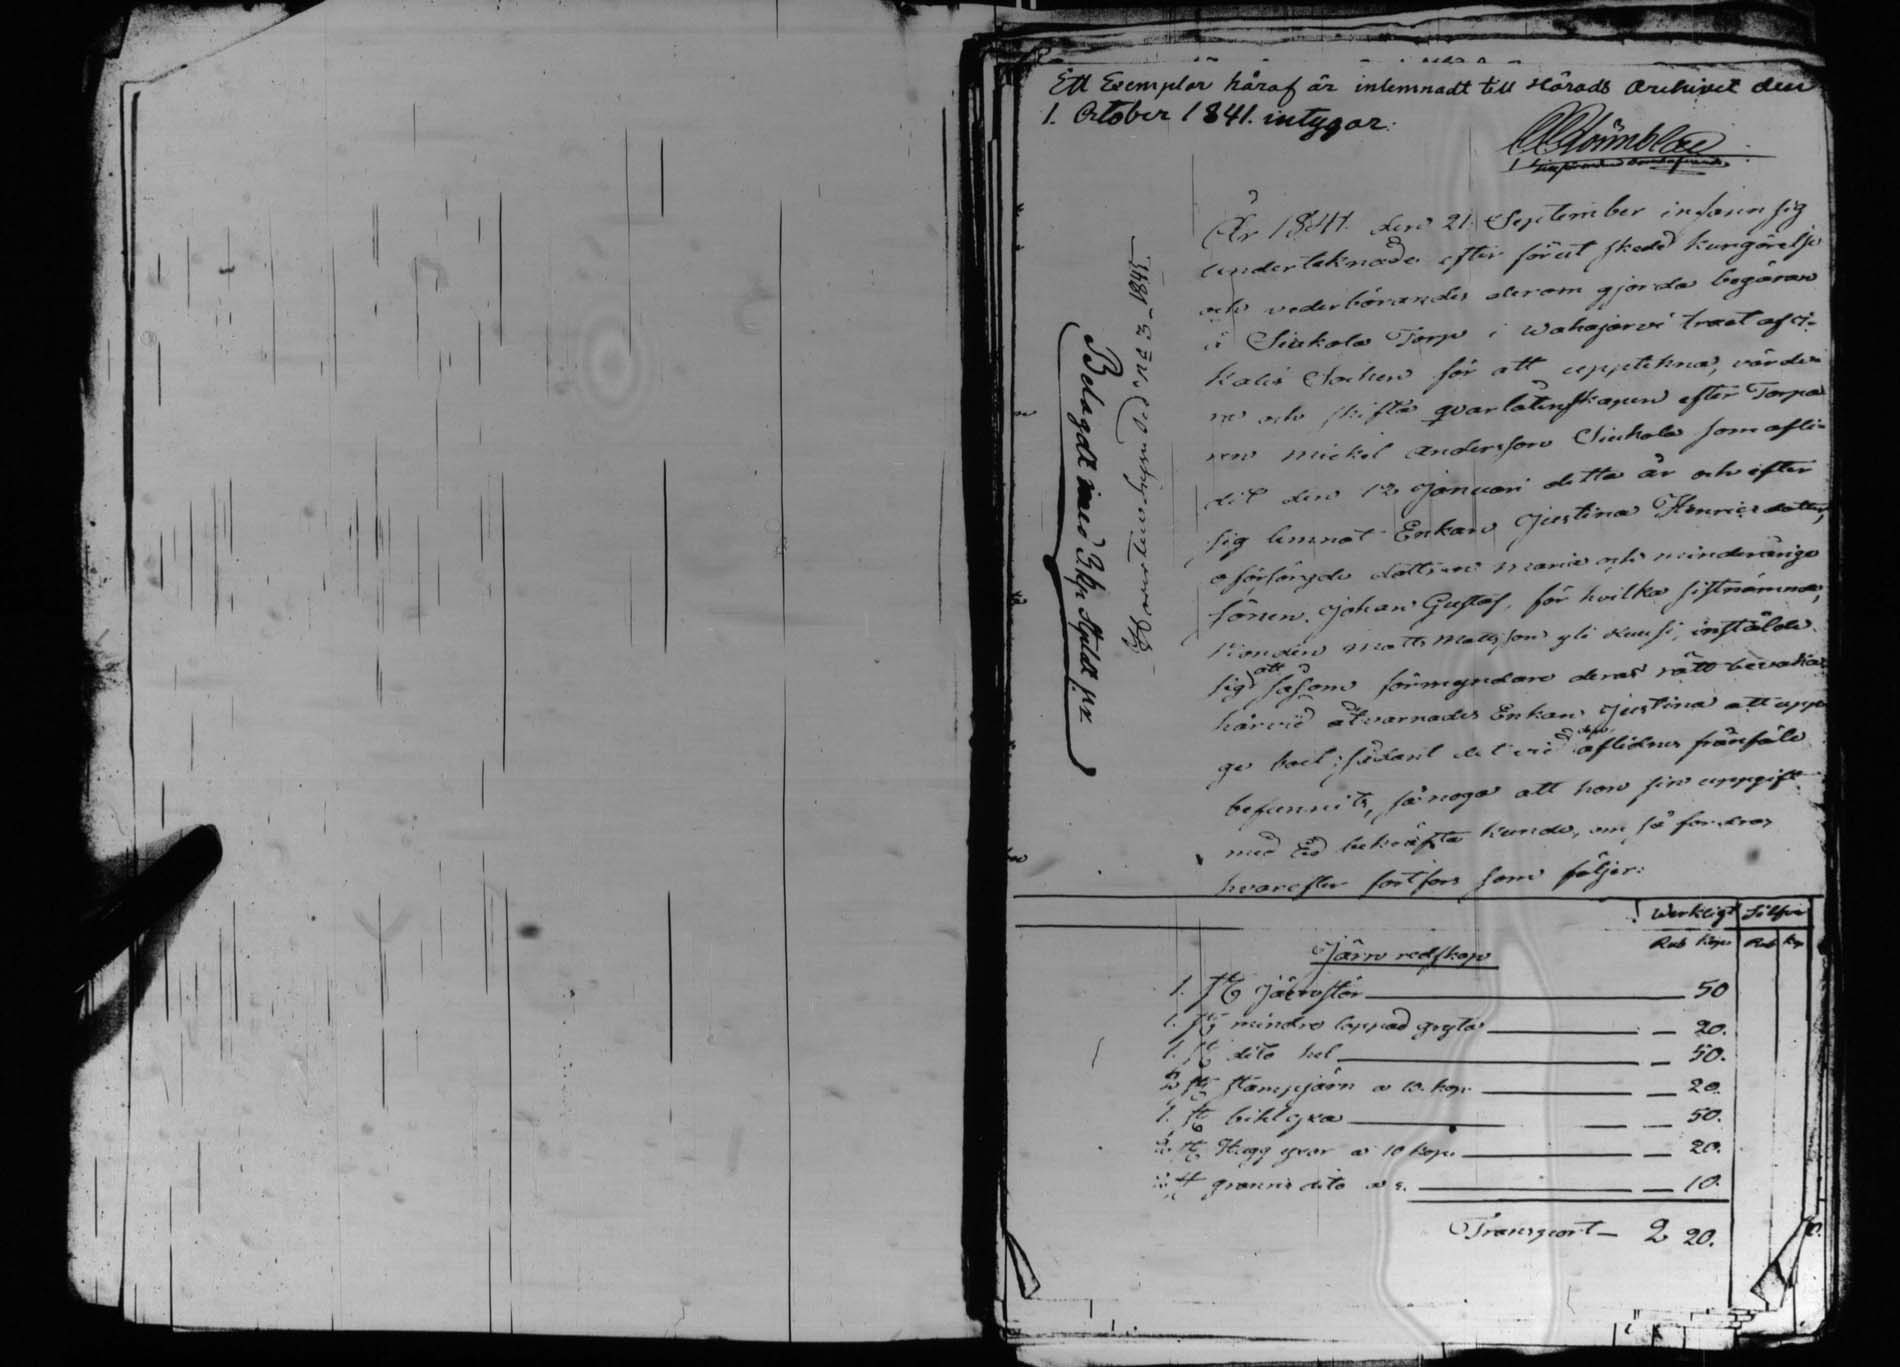 Ett Exemplar häraf är inlemnadt till Härads Archivet den
1. October 1841. intygar:
År 1841. den 21. September infann sig
undertecknade efter förut skedd kungörelse
och vederbörandes derom gjorda begäran
å Siukola Torp i Wahajärvi tract af I-
kalis Socken för att uppteckna, värde-
ra och skifta qvarlåtenskapen efter Torpa-
ren Mickel Andersson Siukola som afli-
dit den 12 Januari detta år och efter
sig lemnat Enkan Justina Henricsdotter,
oförsörgde dottren Maria och minderårige
sonen Johan Gustaf, för hvilka sistnämnda,
Bonden Matts Mattsson Yli instälde
sig att såsom förmyndare deras rätt bevaka,
härvid åtvarnades Enkan Justina att uppge
boet; sådant det vid aflidnes frånfälle
befunnits, så noga att hon sin uppgift
med Ed bekräfta kunde, om så fordras
hvarefter fortfors som följer:
Belagdt med 3 kp Stpldt ppr
1841.
Werkligt Silfver
Rub Kop Rub Kp
Järn redskap
1. st Järnstör 50
1. st mindre lappad gryta — 20.
1. st dito hel — 50.
2 st stampjärn a 10. kop. — 20.
1. st bihlyxa — 50.
2. st Hugg yxor a 10 kop. — 20.
2. st dito a 5. — 10.
Transport — 2 20.